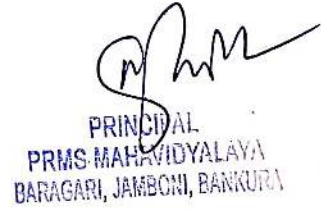 PRINCIPAL
PRMS MAHAVIDYALAYA
BARAGARI, JAMBONI, BANKURA